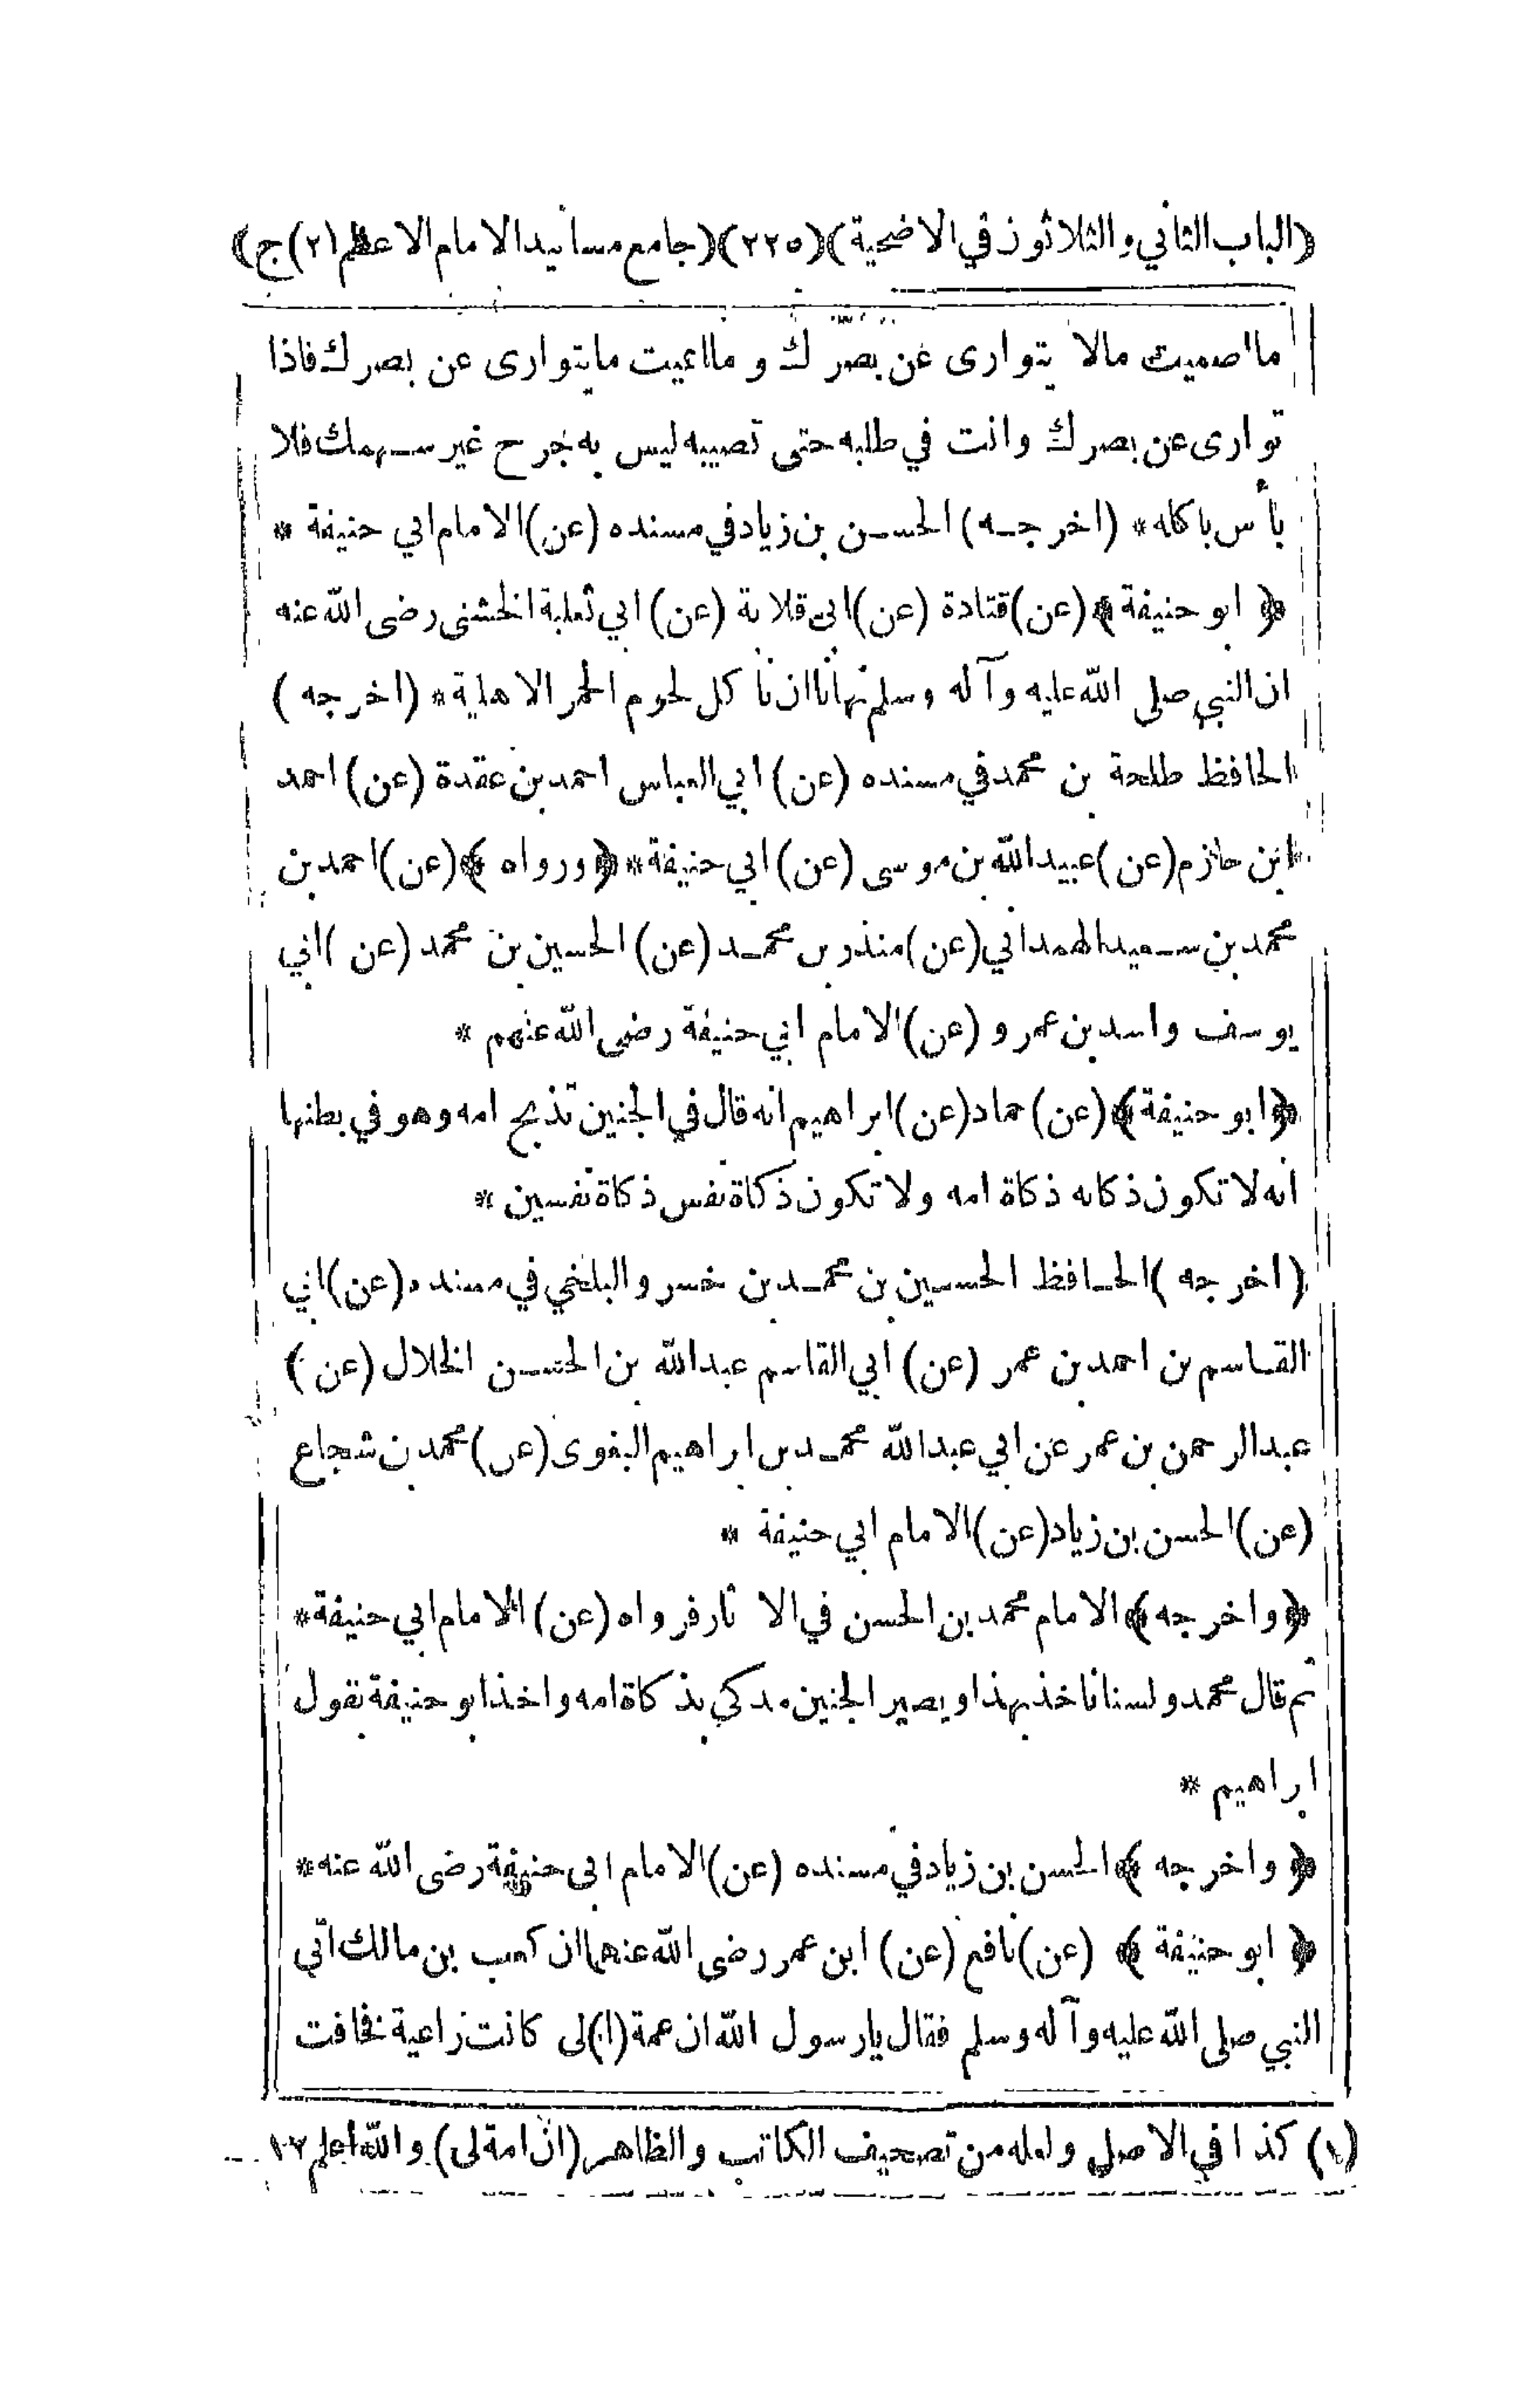 ﴿الباب الثاني والثلاثون في الاضحية﴾ (٢٢٥) (جامع مسانيد الامام الاعظم (٢) ج﴾
ما اصميت مالا يتوارى عن بصرك و ما انميت مايتوارى عن بصرك فاذا
توارى عن بصرك وانت في طلبه حتى تصيبه ليس به جرح غير سهمك فلا
بأس باكله * (اخرجه) الحسن بن زياد في مسنده (عن) الامام ابي حنيفة *
﴿ ابو حنيفة ﴾ (عن) قتادة (عن) ابي قلابة (عن) ابي ثعلبة الخشنى رضى الله عنه
ان النبي صلى الله عليه وآله وسلم نهانا ان نأ كل لحوم الحمر الاهلية * (اخرجه)
الحافظ طلحة بن محمد في مسنده (عن) ابي العباس احمد بن عقدة (عن) احمد
ابن حازم (عن) عبيد الله بن موسى (عن) ابي حنيفة * ﴿ ورواه ﴾ (عن) احمد بن
محمد بن سعيد الهمداني (عن) منذر بن محمد (عن) الحسين بن محمد (عن) ابي
يوسف واسد بن عمرو (عن) الامام ابي حنيفة رضى الله عنهم *
﴿ ابو حنيفة ﴾ (عن) حماد (عن) ابراهيم انه قال في الجنين تذبح امه وهو في بطنها
انه لا تكون ذكاته ذكاة امه ولا تكون ذكاة نفس ذكاة نفسين *
(اخرجه) الحافظ الحسين بن محمد بن خسرو البلخي في مسنده (عن) ابي
القاسم بن احمد بن عمر (عن) ابي القاسم عبد الله بن الحسن الخلال (عن)
عبد الرحمن بن عمر عن ابي عبد الله محمد بن ابراهيم البغوى (عن) محمد بن شجاع
(عن) الحسن بن زياد (عن) الامام ابي حنيفة *
﴿ واخرجه ﴾ الامام محمد بن الحسن في الا ثار فرواه (عن) الامام ابي حنيفة *
ثم قال محمد ولسنا ناخذ بهذا ويصير الجنين مدكي بذكاة امه واخذ ابو حنيفة بقول
ابراهيم *
﴿ واخرجه ﴾ الحسن بن زياد في مسنده (عن) الامام ابى حنيفة رضى الله عنه *
﴿ ابو حنيفة ﴾ (عن) نافع (عن) ابن عمر رضى الله عنهما ان كعب بن مالك اتى
النبي صلى الله عليه وآله وسلم فقال يارسول الله ان عمة (١) لى كانت راعية فخافت
(١) كذا في الاصل ولعله من تصحيف الكاتب والظاهر (ان امة لى) والله اعلم ١٢